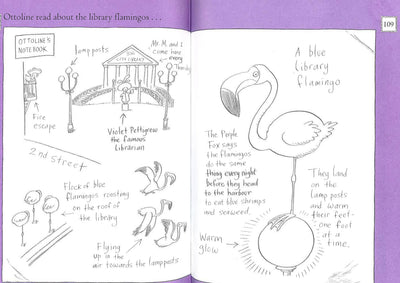 Ottoline read about the library flamingos . . .
109
OTTOLINE'S
NOTEBOOK
lampposts
Mr. M. and I
come here
every
Thursday
CITY LIBRARY
Fire
escape
Violet Pettigrew
the famous
Librarian
2nd Street
Flock of blue
flamingos roosting
on the roof of
the library
Flying
up in the
air towards the lampposts
A blue
library
flamingo
The Purple
Fox says
the flamingos
do the same
thing every night
before they head
to the harbour
to eat blue shrimps
and seaweed.
They land
on the
lamp posts
and warm
their feet-
one foot
at a
time.
Warm
glow